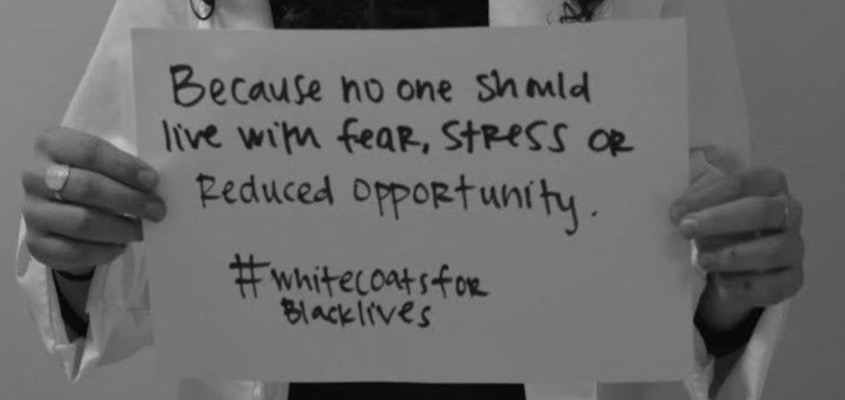 Because no one should
live with fear, stress or
Reduced opportunity.
#whitecoatsfor
Blacklives